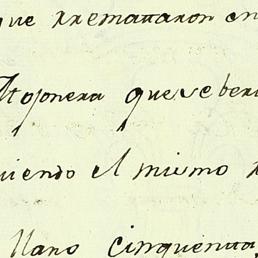 que rremataron en
Atojonera que se beri
uiendo el mismo
llano cinquenta,